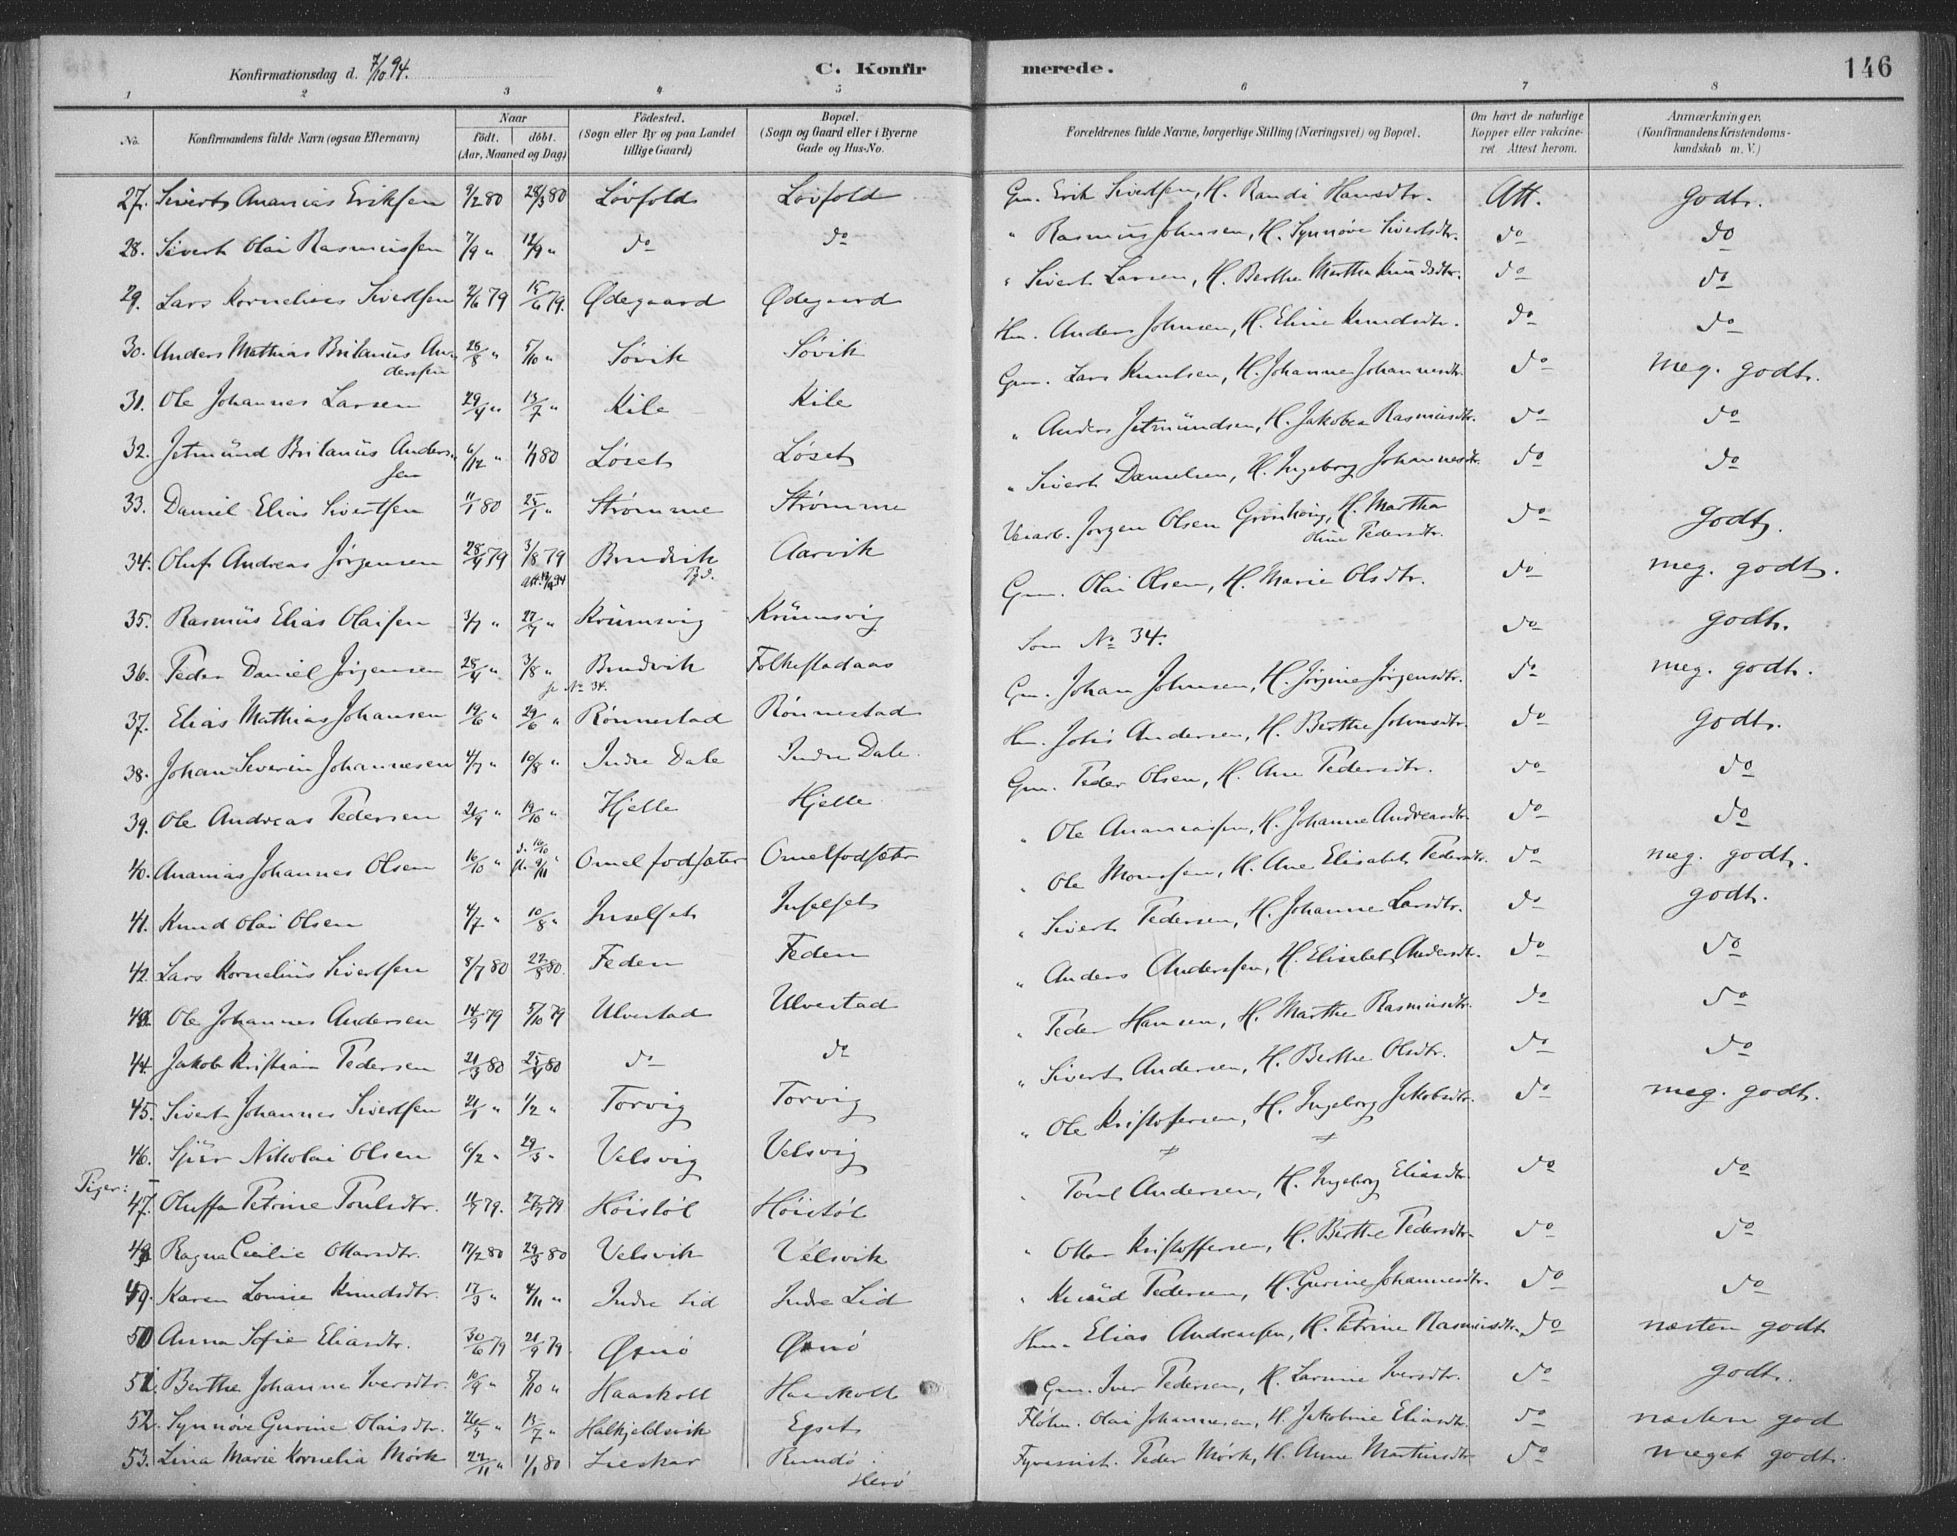 Konfirmationsdag d. 7/10 94.
C. Konfir
merede.
146
1 2 3 4 5 6 7 8
No.
Konfirmandens fulde Navn (ogsaa Efternavn)
Naar
født. døbt.
(Aar, Maaned og Dag)
Fødested.
(Sogn eller By og paa Landet
tillige Gaard)
Bopæl.
(Sogn og Gaard eller i Byerne
Gade og Hus-No.
Forældrenes fulde Navne, borgerlige Stilling (Næringsvei) og Bopæl.
Om havt de naturlige
Kopper eller vakcine-
ret. Attest herom.
Anmærkninger.
(Konfirmandens Kristendoms-
kundskab m. V.)
27. Sivert Ananias Eriksen 9/2 80 28/3 80 Løvfold Løvfold Gm. Erik Sivertsen, H. Randi Hansdtr. Att. godt.
28. Sivert Olai Rasmussen 7/9 " 12/9 " do do " Rasmus Johnsen, H. Synnøve Sivertsdtr. do do
29. Lars Kornelius Sivertsen 2/6 79 15/6 79. Ødegaard Ødegaard " Sivert Larsen, H. Berthe Martha Knudsdtr. do do
30. Anders Mathias Britanus Andersen 26/8 " 5/10 " Søvik Søvik Hm. Anders Johnsen, H. Eline Knudsdtr. do do
31. Ole Johannes Larsen 29/4 " 13/7 " Kile Kile Gm. Lars Knutsen, H. Johanne Johannesdtr. do meg. godt.
32. Jetmund Britanus Andersen 6/12 " 1/1 80 Løset Løset " Anders Jetmundsen, H. Jakobea Rasmusdtr. do do
33. Daniel Elias Sivertsen 11/1 80 25/1 " Strømme Strømme " Sivert Danielsen, H. Ingeborg Johannesdtr. do do
34. Oluf Andreas Jørgensen 28/4 79 3/8 79 Brudvik Aarvik Jørgen Olsen H. Martha Oline Pedersdtr. do godt.
35. Rasmus Elias Olaisen 3/7 " 27/7 " Krumsvig Krumsvig Gm. Olai Olsen, H. Marie Olsdtr. do meg. godt.
36. Peder Daniel Jørgensen 28/4 " 3/8 " Brudvik Folkestadaas Som No 34. do godt.
se No 34.
37. Elias Mathias Johansen 19/6 " 29/6 " Rønnestad Rønnestad Gm. Johan Johnsen, H. Jørgine Jørgensdtr. do meg. godt.
38. Johan Severin Johannesen 4/7 " 10/8 " Indre Dale Indre Dale Hm. Johs Andersen, H. Berthe Johnsdtr. do godt.
39. Ole Andreas Pedersen 21/9 " 19/10 " Hjelle Hjelle Gm. Peder Olsen, H. Ane Pedersdtr. do do
40. Ananias Johannes Olsen 16/10 " Omelfodsæter Omelfodsæter " Ole Ananiassen, H. Johanne Andreasdtr. do do
41. Knud Olai Olsen 4/7 " 10/8 " Inselset Inselset " Ole Monssen, H. Ane Elisabet Pedersdtr. do meg. godt.
42. Lars Kornelius Sivertsen 8/7 80 22/8 80. Feden Feden " Sivert Pedersen, H. Johanne Larsdtr. do godt.
43. Ole Johannes Andersen 14/9 79 5/10 79 Ulvestad Ulvestad " Anders Andersen, H. Elisabet Andersdtr. do do
44. Jakob Kristian Pedersen 21/3 80 25/4 80 do do " Peder Hansen, H. Marthe Rasmusdtr. do do
45. Sivert Johannes Sivertsen 21/1 " 1/2 " Torvig Torvig " Sivert Andersen, H. Berthe Olsdtr. do do
46. Nikolai Olsen 6/2 " 29/3 " Velsvig Velsvig " Ole Kristofersen, H. Ingeborg Jakobsdtr. do meg. godt.
Piger:
47. Oluffa Petrine Poulsdtr. Høistøl Høistøl " Poul Andersen, H. Ingeborg Eliasdtr. do do
48. Ragna Cecilie Ottarsdtr. 17/2 80 29/3 80 Velsvik Velsvik " Ottar Kristoffersen, H. Berthe Pedersdtr. do do
49. Karen Lovise Knudsdtr. 17/3 " 4/11 " Indre Lid Indre Lid " Knud Pedersen, H. Gurine Johannesdtr. do do
50 Anna Sofie Eliasdtr. 30/6 79 21/9 79. Ørnø Ørnø Hm. Elias Andreassen, H. Petrine Rasmusdtr. do næsten godt
51. Berthe Johanne Iversdtr. 10/9 " 5/10 " Haaskoll Haaskoll Gm. Iver Pedersen, H. Larine Iversdtr. do godt.
52. Synnøve Gurine Olaisdtr. 26/5 " 13/7 " Halkjeldsvik Egset Olai Johannesen, H. Jakobine Eliasdtr. do næsten god
53. Lina Marie Kornelia Mørk 22/11 " 1/1 80 Lieskar Rundø Herø Fyrassist. Peder Mørk, H. Anne Martinsdtr. do meget godt.